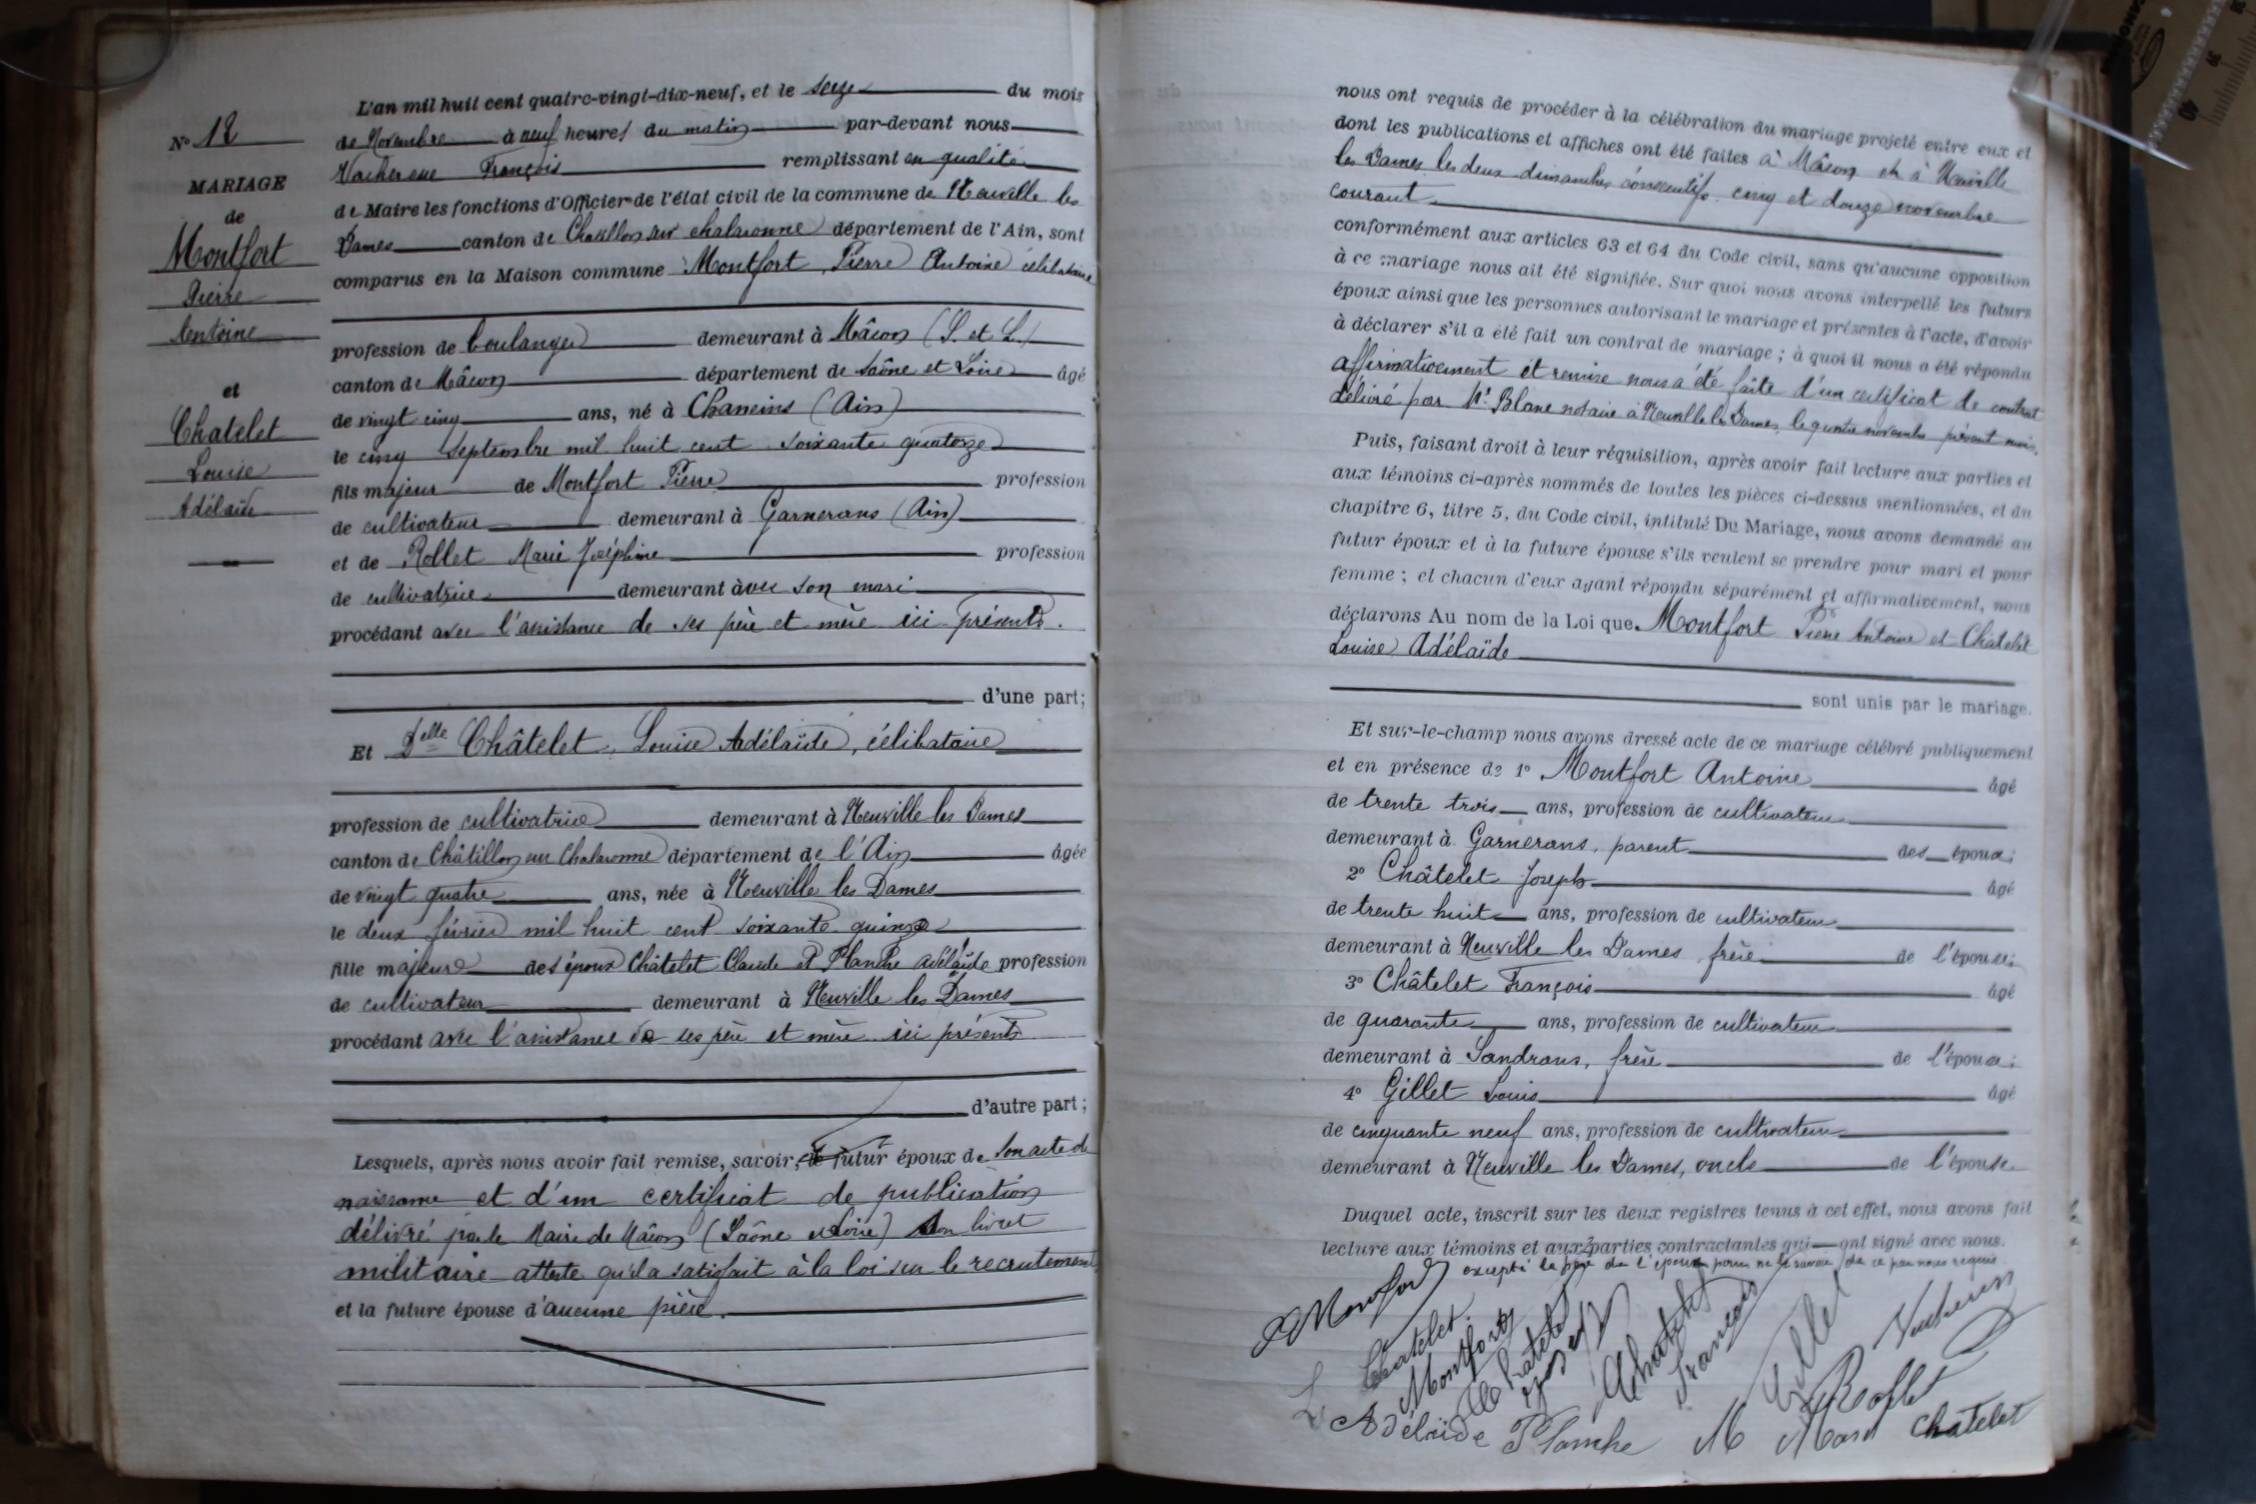 N° 12
MARIAGE
de
Montfort
Pierre
Antoine
et
Chatelet
Louise
Adélaïde
L'an mil huit cent quatre-vingt-dix-neuf, et le seize du mois
de Novembre à neuf heures du matin par-devant nous
Vacheresse François remplissant en qualité
de Maire les fonctions d'Officier de l'état civil de la commune de Neuville les
Dames canton de Chatillon sur chalaronne département de l'Ain, sont
comparus en la Maison commune : Montfort Pierre Antoine célibataire
profession de boulanger demeurant à Mâcon (S. et L.)
canton de Mâcon département de Saône et Loire âgé
de vingt cinq ans, né à Chaneins (Ain)
le cinq Septembre mil huit cent soixante quatorze
fils majeur de Montfort Pierre profession
de cultivateur demeurant à Garnerans (Ain)
et de Rollet Marie Joséphine profession
de cultivatrice demeurant avec son mari
procédant avec l'assistance de ses père et mère ici présents.
d'une part;
Et Delle Châtelet, Louise Adélaïde, célibataire
profession de cultivatrice demeurant à Neuville les Dames
canton de Châtillon sur Chalaronne département de l'Ain âgée
de vingt quatre ans, née à Neuville les Dames
le deux février mil huit cent soixante quinze
fille majeure des époux Châtelet Claude et Planche adélaïde profession
de cultivateur demeurant à Neuville les Dames
procédant avec l'assistance de ses père et mère ici présents
d'autre part;
Lesquels, après nous avoir fait remise, savoir, le futur époux de son acte de
naissance et d'un certificat de publication
délivré par le Maire de Mâcon (Saône et Loire) son livret
militaire atteste qu'il a satisfait à la loi sur le recrutement
et la future épouse d'aucune pièce.
nous ont requis de procéder à la célébration du mariage projeté entre eux et
dont les publications et affiches ont été faites à Mâcon et à Neuville
les Dames les deux dimanches consécutifs cinq et douze novembre
courant
conformément aux articles 63 et 64 du Code civil, sans qu'aucune opposition
à ce mariage nous ait été signifiée. Sur quoi nous avons interpellé les futurs
époux ainsi que les personnes autorisant le mariage et présentes à l'acte, d'avoir
à déclarer s'il a été fait un contrat de mariage ; à quoi il nous a été répondu
affirmativement et remise nous a été faite d'un certificat de contrat
délivré par Me Blanc notaire à Neuville les Dames, le quatre novembre présent mois.
Puis, faisant droit à leur réquisition, après avoir fait lecture aux parties et
aux témoins ci-après nommés de toutes les pièces ci-dessus mentionnées, et du
chapitre 6, titre 5, du Code civil, intitulé Du Mariage, nous avons demandé au
futur époux et à la future épouse s'ils veulent se prendre pour mari et pour
femme ; et chacun d'eux ayant répondu séparément et affirmativement, nous
déclarons Au nom de la Loi que Montfort Pierre Antoine et Chatelet
Louise Adélaïde
sont unis par le mariage.
Et sur-le-champ nous avons dressé acte de ce mariage célébré publiquement
et en présence de 1° Montfort Antoine âgé
de trente trois ans, profession de cultivateur
demeurant à Garnerans, parent des époux;
2° Châtelet Joseph âgé
de trente huit ans, profession de cultivateur
demeurant à Neuville les Dames, frère de l'épouse;
3° Châtelet François âgé
de quarante ans, profession de cultivateur
demeurant à Sandrans, frère de l'épouse;
4° Gillet Louis âgé
de cinquante neuf ans, profession de cultivateur
demeurant à Neuville les Dames, oncle de l'épouse.
Duquel acte, inscrit sur les deux registres tenus à cet effet, nous avons fait
lecture aux témoins et aux parties contractantes qui ont signé avec nous.
excepté le père de l'époux pour ne le savoir de ce par nous requis
Monfort
L Chatelet
Montfort
Chatelet
Joseph
Chatelet
François
Gillet
Adélaïde Planche
M Rollet
Chatelet